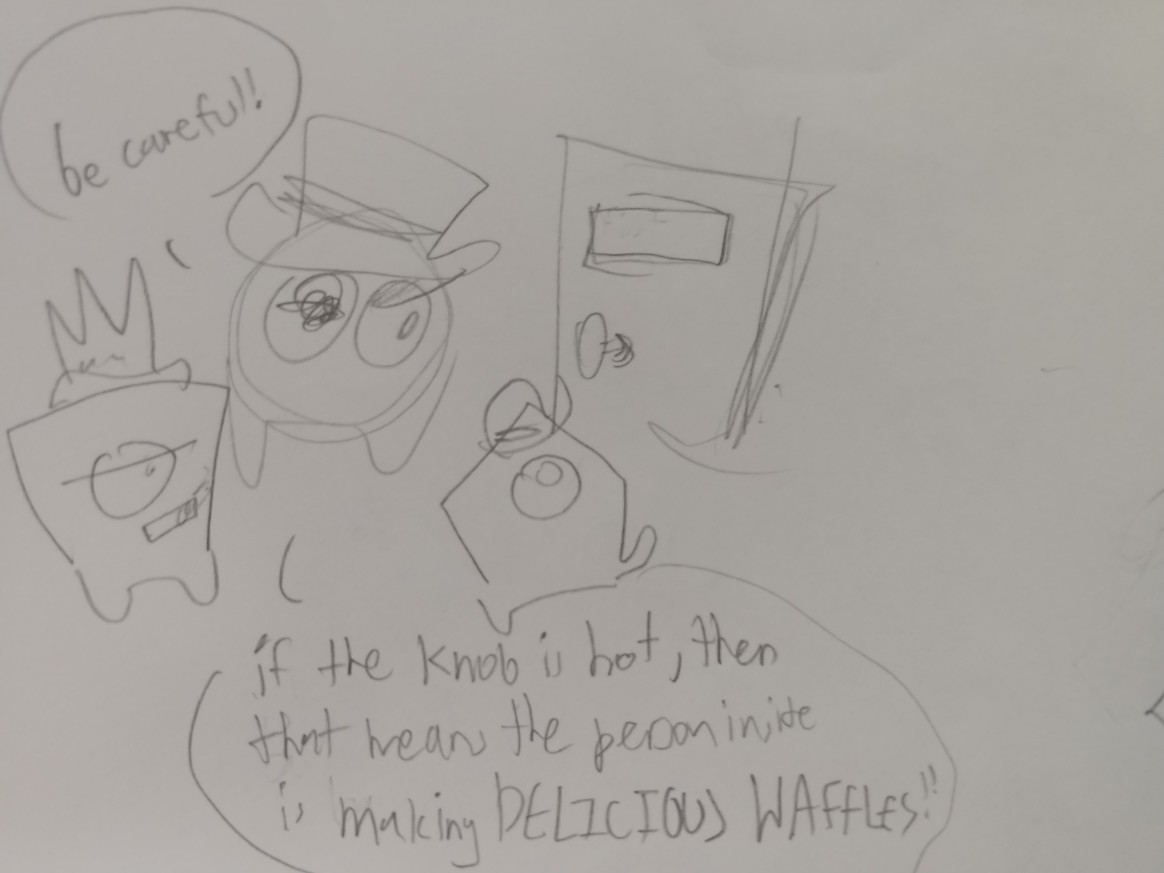 be careful!!
if the knob is hot, then
that means the person inside
is making DELICIOUS WAFFLES!!